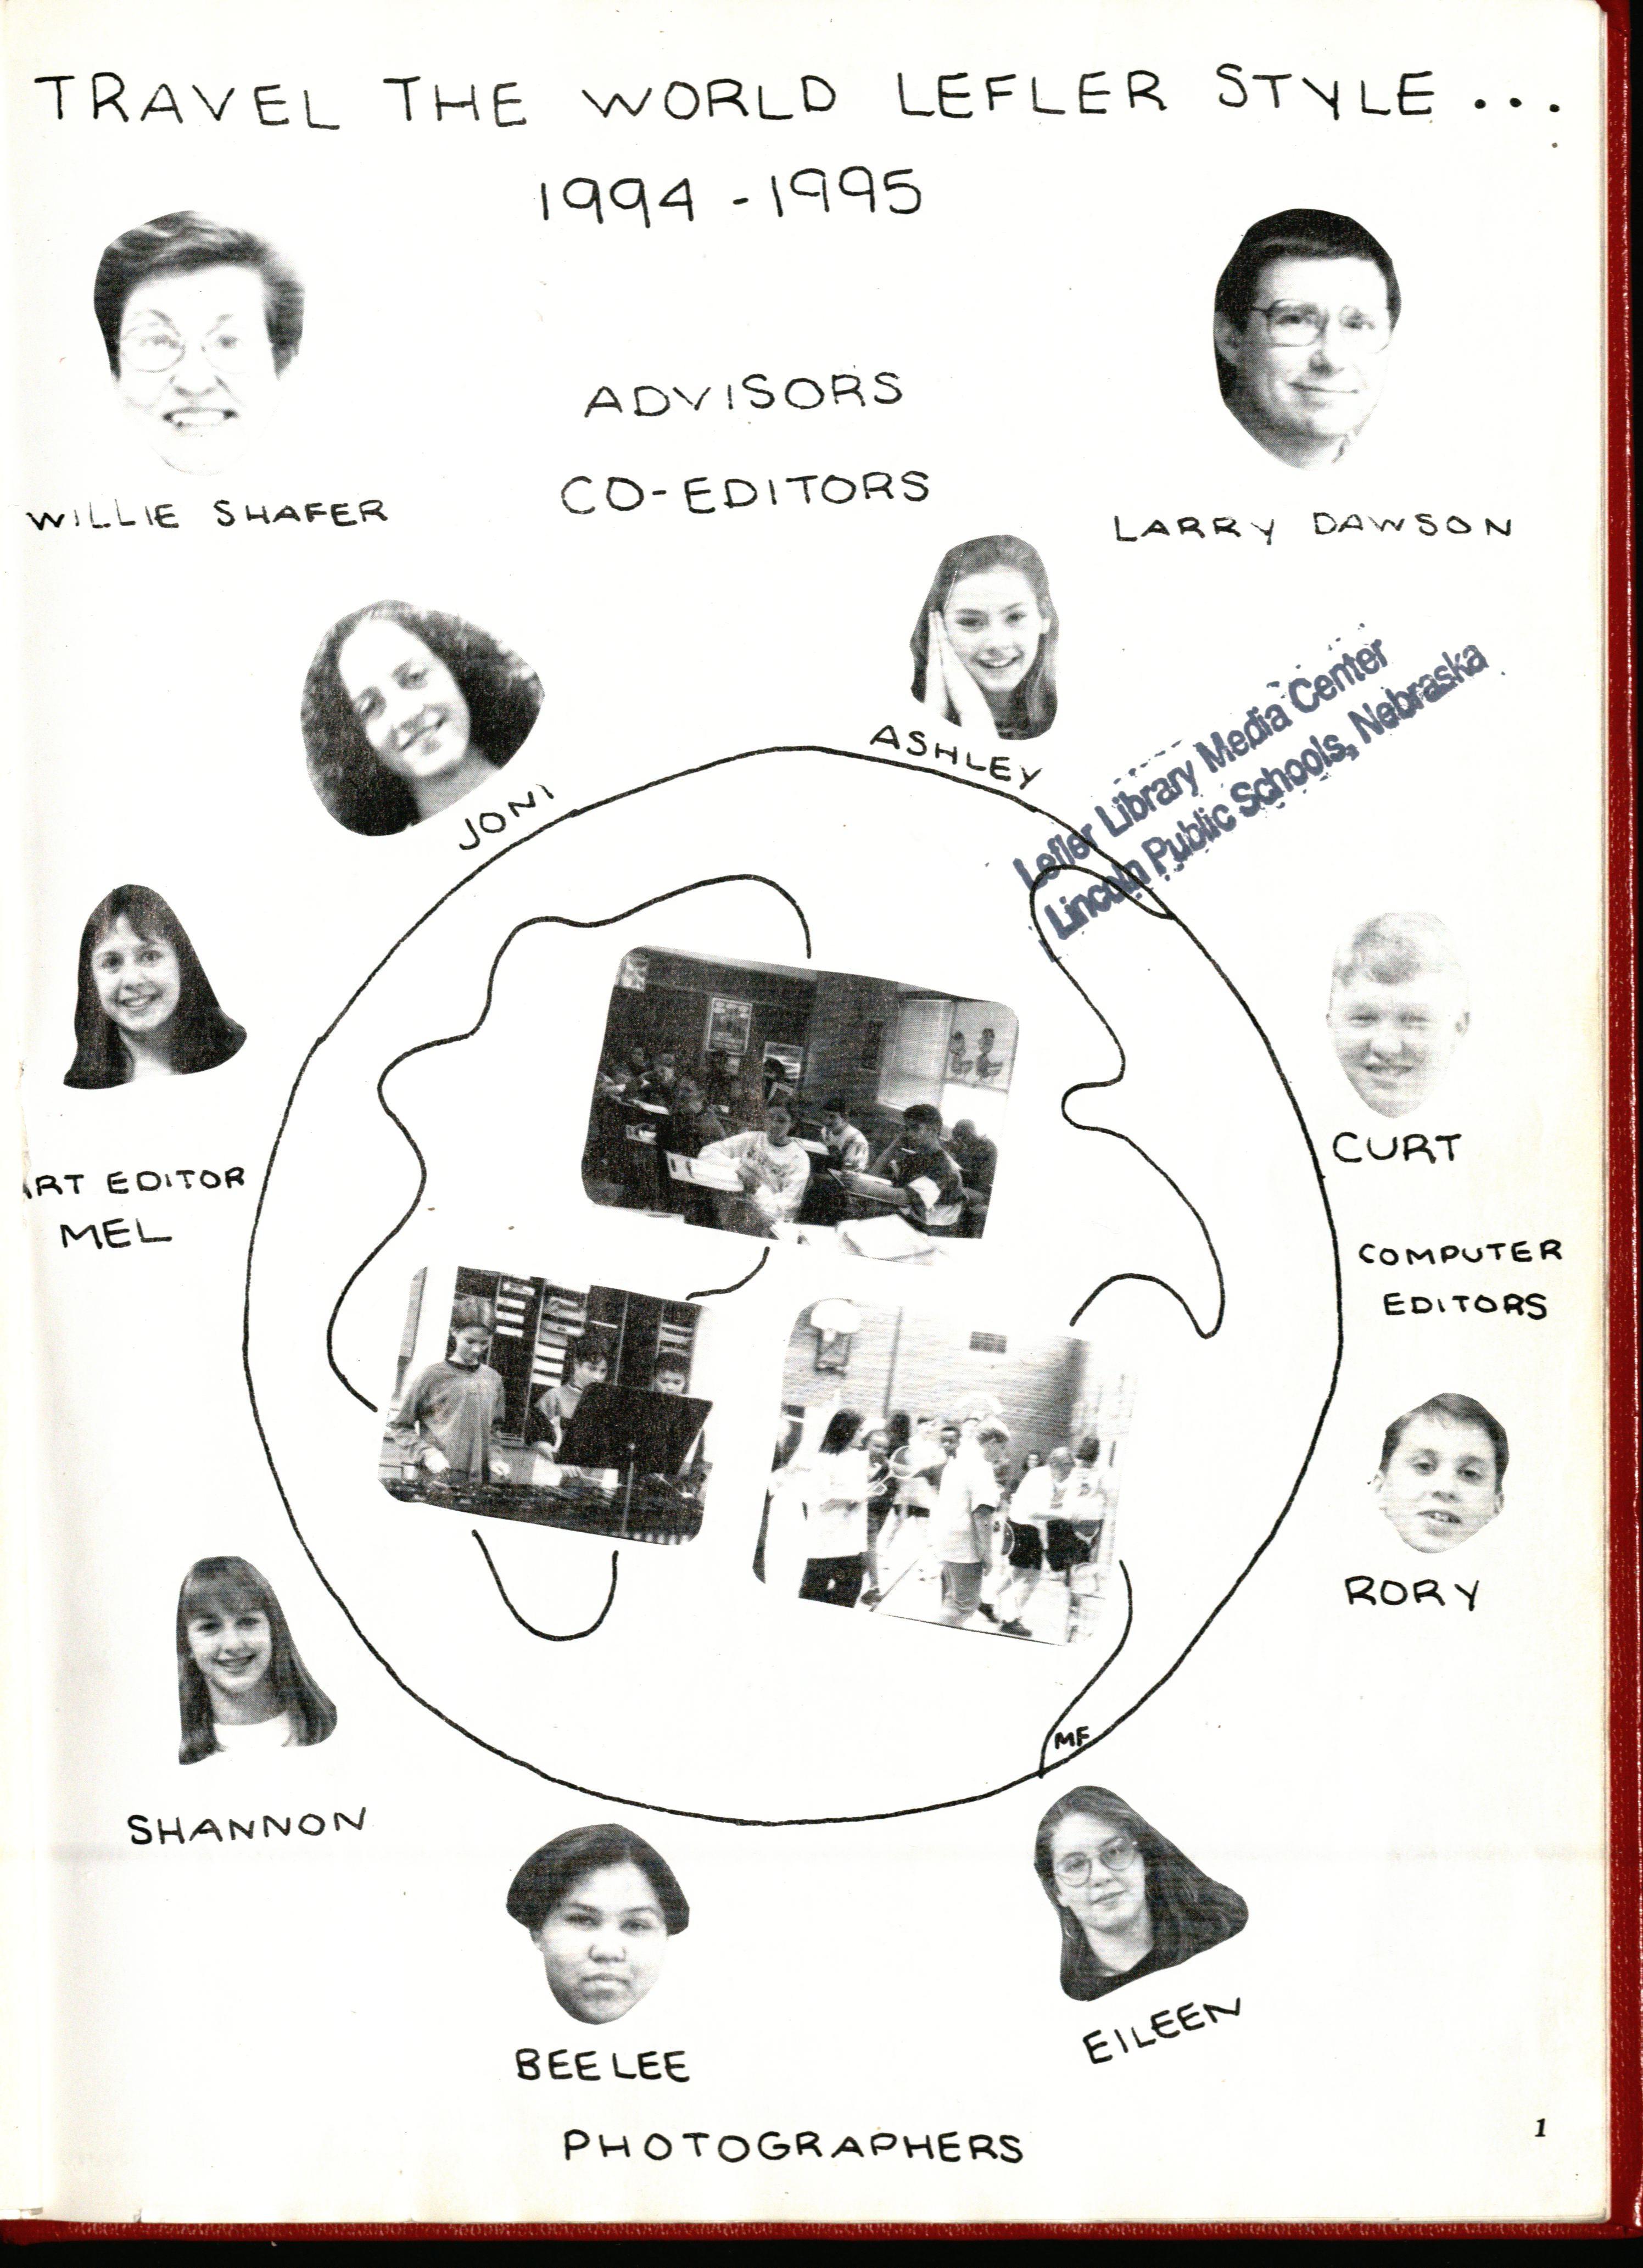 TRAVEL THE WORLD LEFLER STYLE...
1994-1995
ADVISORS
WILLIE SHAFER
LARRY DAWSON
CO-EDITORS
JONI
ASHLEY
Lefler Library Media Center
Lincoln Public Schools, Nebraska
ART EDITOR
MEL
CURT
COMPUTER
EDITORS
RORY
MF
SHANNON
BEE LEE
EILEEN
PHOTOGRAPHERS
1